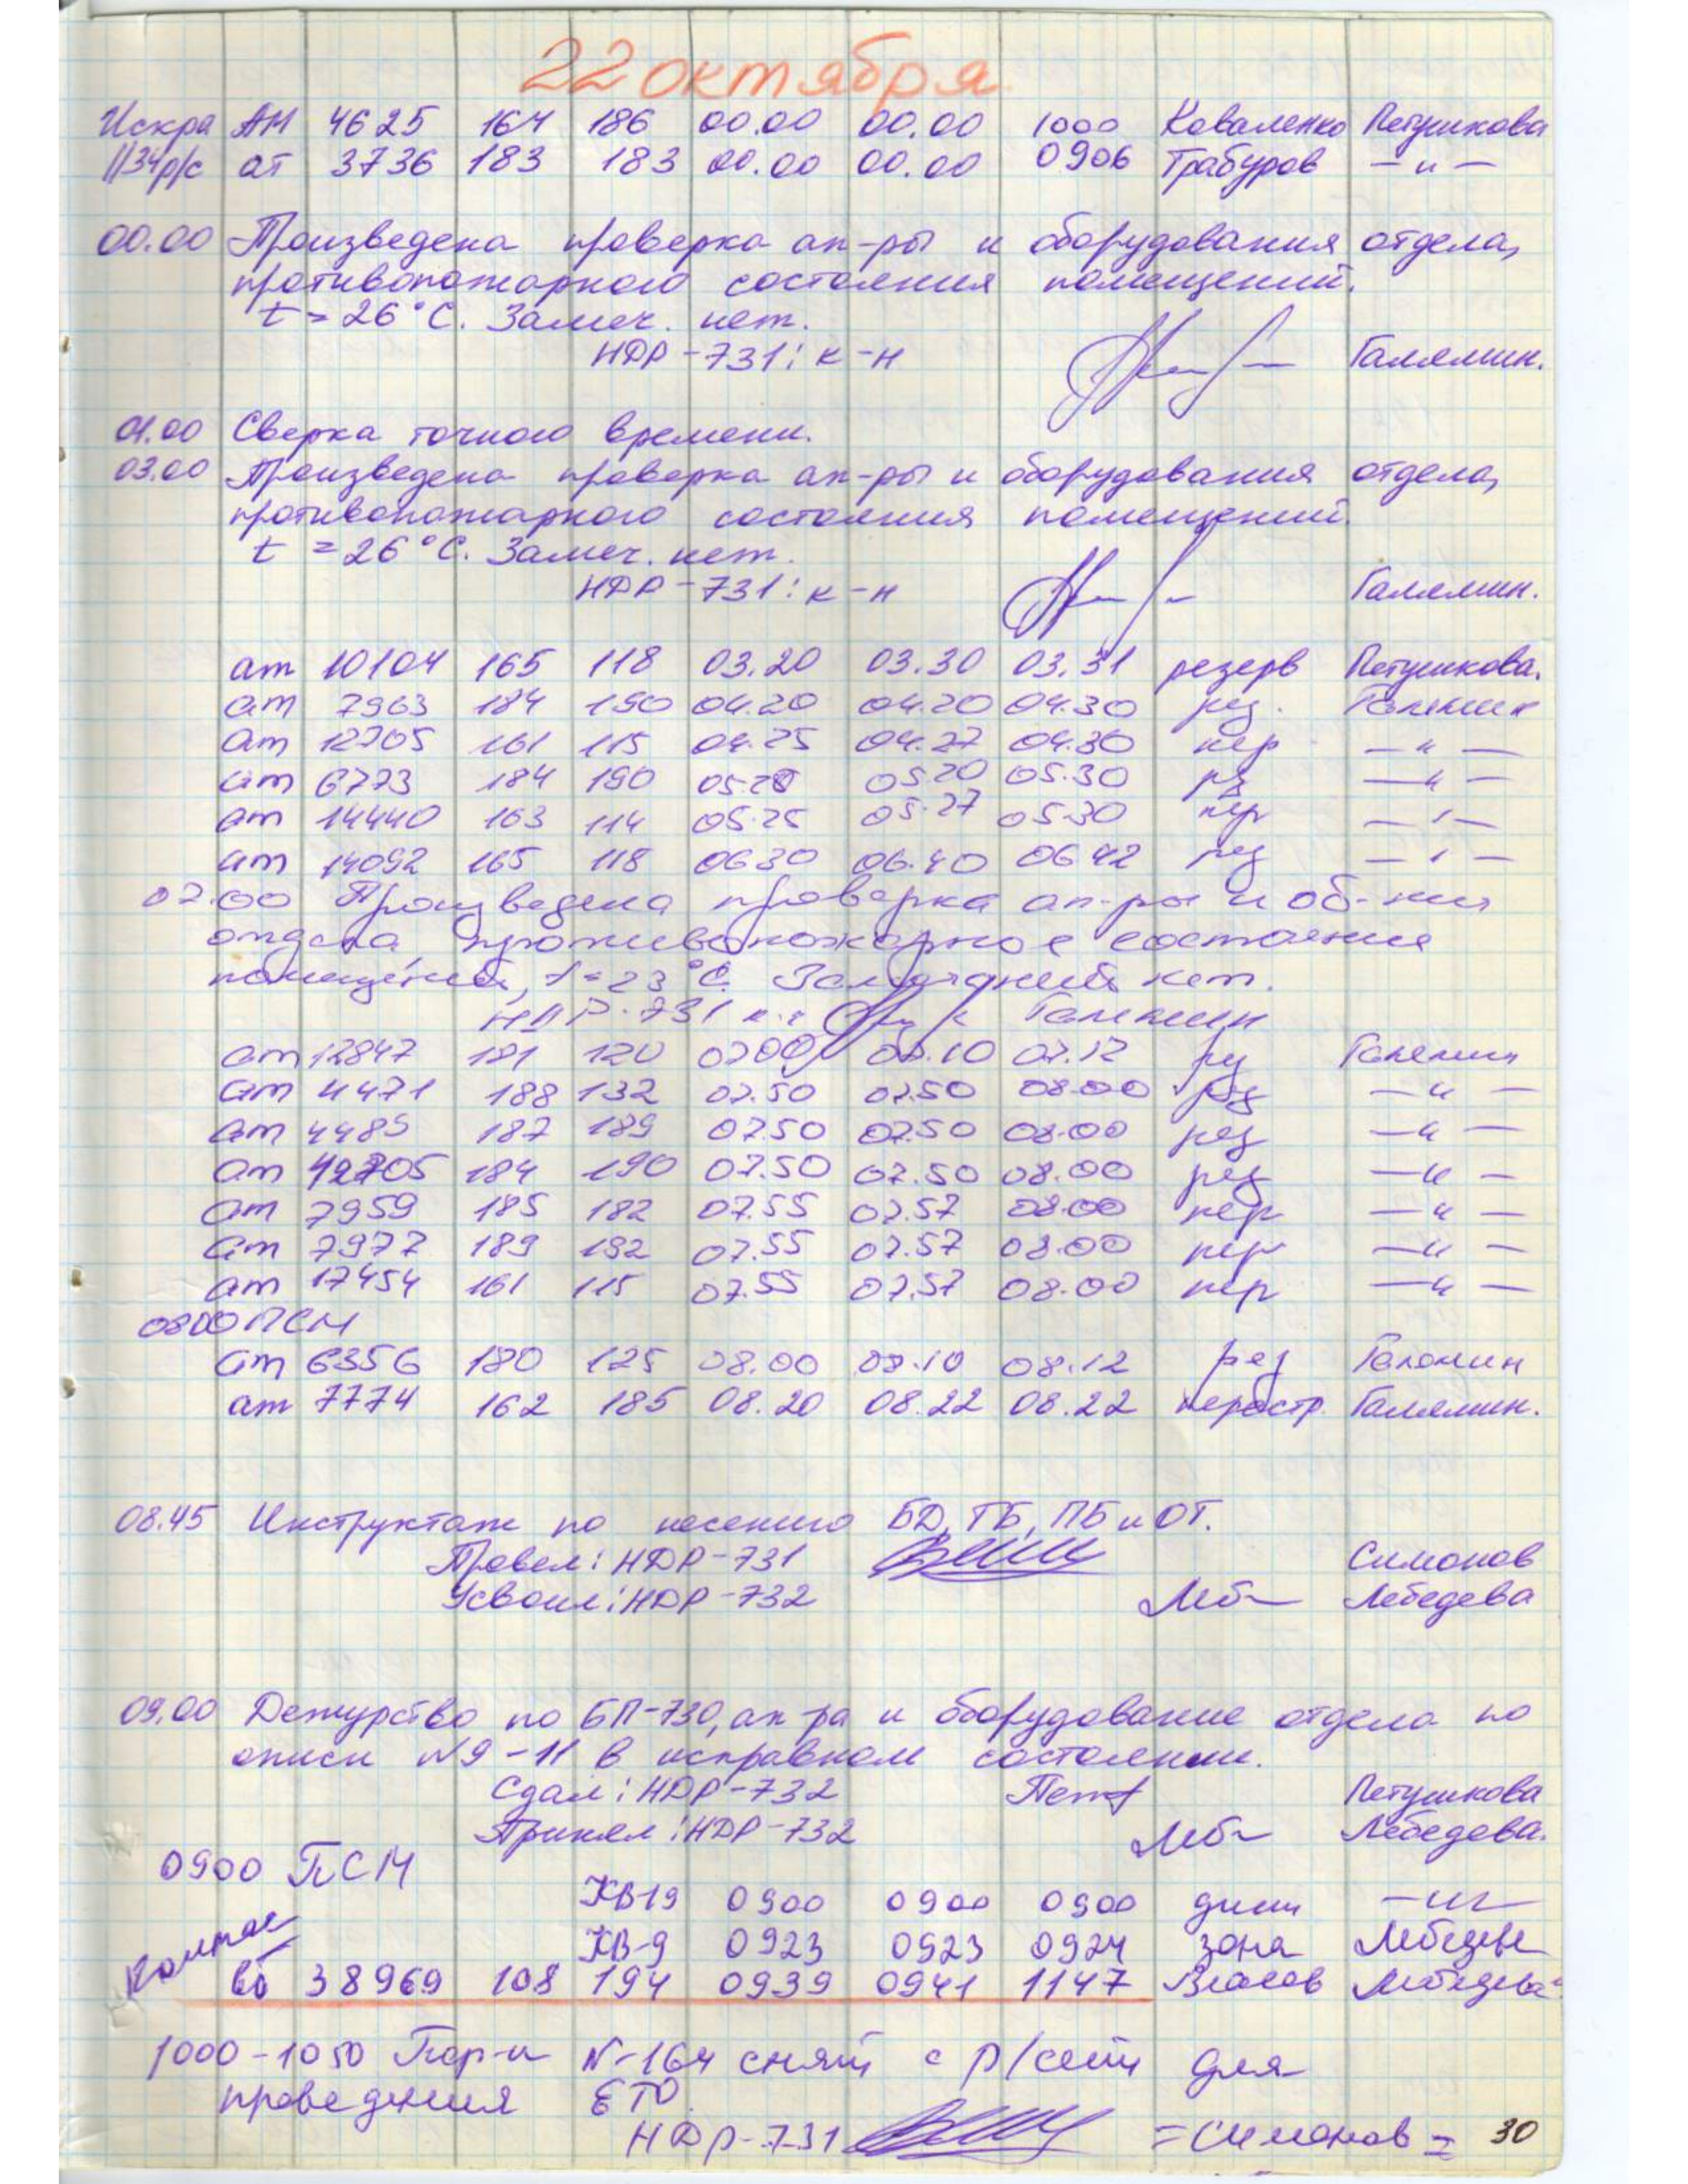 22 октября
Искра АМ 4625 164 186 00.00 00.00 1000 Коваленко Петушкова
1134 р/с ат 3736 183 183 00.00 00.00 0906 Трабуров — " —
00.00 Произведена проверка ап-ры и оборудования отдела,
противопожарного состояния помещений.
t = 26°С. Замеч. нет.
НДР-731: к-н Галямин.
01.00 Сверка точного времени.
03.00 Произведена проверка ап-ры и оборудования отдела,
противопожарного состояния помещений.
t = 26°С. Замеч. нет.
НДР-731: к-н Галямин.
ат 10104 165 118 03.20 03.30 03.31 резерв Петушкова.
ат 7963 184 190 04.20 04.20 04.30 рез. Галямин
ат 12705 161 115 04.25 04.27 04.30 пер — " —
ат 6773 184 190 05.20 05.20 05.30 рез — " —
ат 14440 163 114 05.25 05.27 05.30 пер — " —
ат 14092 165 118 0630 06.40 0642 рез — " —
07.00 Произведена проверка ап-ры и об-ния
отдела, противопожарное состояние
помещений, t=23°С. Замечаний нет.
НДР-731 к-н Галямин
ат 12847 181 120 0700 07.10 07.12 рез Галямин
ат 4471 188 132 07.50 07.50 08.00 рез — " —
ат 4485 187 189 07.50 07.50 08.00 рез — " —
ат 184 190 07.50 07.50 08.00 рез — " —
ат 7959 185 182 07.55 07.57 08.00 пер — " —
ат 7977 189 192 07.55 07.57 08.00 пер — " —
ат 17454 161 115 07.55 07.57 08.00 пер — " —
0800 ПСМ
ат 6356 180 125 08.00 08.10 08.12 рез Галямин
ат 7774 162 185 08.20 08.22 08.22 перестр. Галямин.
08.45 Инструктаж по несению БД, ТБ, ПБ и ОТ.
Провел: НДР-731 Симонов
Усвоил: НДР-732 Леб Лебедева
09.00 Дежурство по БП-730, ап-ра и оборудование отдела по
описи №9-11 в исправном состоянии.
Сдал: НДР-732 Пет Петушкова
Принял: НДР-732 Леб Лебедева.
0900 ПСМ
КВ-19 0900 0900 0900 — " —
КВ-9 0923 0923 0924 зона Лебедева
Колтае
вб 38969 108 194 0939 0941 1147 Власов Лебедева
1000-1050 N-164 снят с р/сети для
проведения ЕТО.
НДР-731 =Симонов= 30